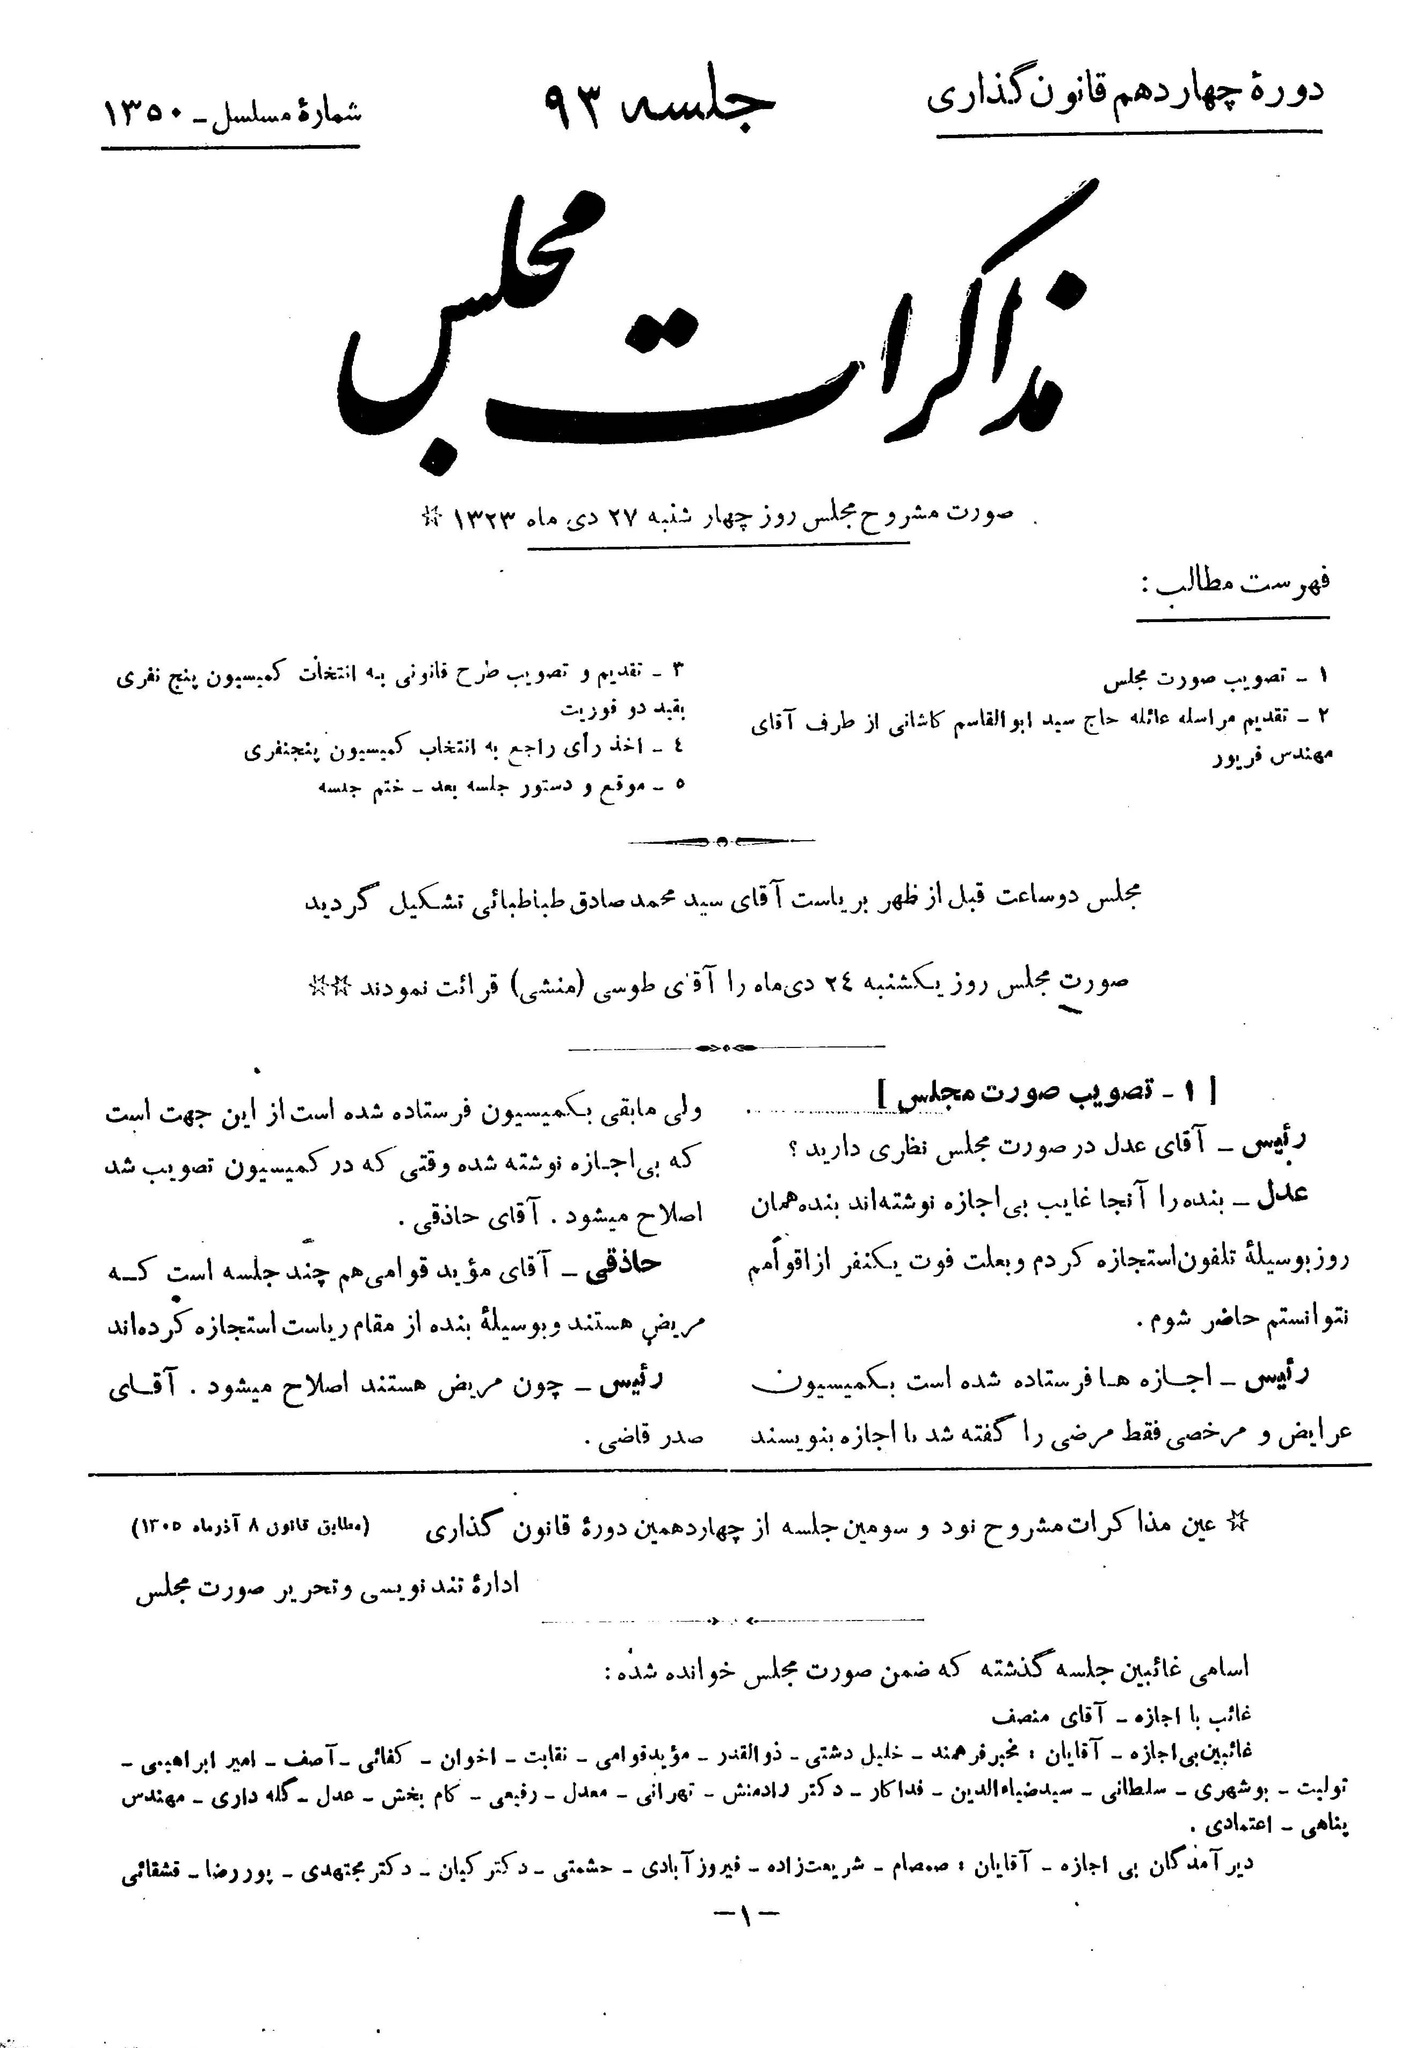 دورهٔ چهاردهم قانون‌گذاری
جلسه ۹۳
شمارهٔ مسلسل ـ ۱۳۵۰
مذاکرات مجلس
صورت مشروح مجلس روز چهار شنبه ۲۷ دی ماه ۱۳۲۳ ☆
فهرست مطالب :
۱ ـ تصویب صورت مجلس
۲ ـ تقدیم مراسله عائله حاج سید ابوالقاسم کاشانی از طرف آقای
مهندس فریور
۳ ـ تقدیم و تصویب طرح قانونی به انتخاب کمیسیون پنج نفری
بقید دو فوریت
٤ ـ اخذ رأی راجع به انتخاب کمیسیون پنجنفری
۵ ـ موقع و دستور جلسه بعد ـ ختم جلسه
مجلس دو ساعت قبل از ظهر بریاست آقای سید محمد صادق طباطبائی تشکیل گردید
صورت مجلس روز یکشنبه ۲٤ دی‌ماه را آقای طوسی (منشی) قرائت نمودند ☆☆
[ ۱ ـ تصویب صورت مجلس ]
رئیس ـ آقای عدل در صورت مجلس نظری دارید ؟
عدل ـ بنده را آنجا غایب بی‌اجازه نوشته‌اند بنده همان
روز بوسیلهٔ تلفون استجازه کردم و بعلت فوت یکنفر از اقوامم
نتوانستم حاضر شوم .
رئیس ـ اجازه ها فرستاده شده است بکمیسیون
عرایض و مرخصی فقط مرضی را گفته شد با اجازه بنویسند
ولی مابقی بکمیسیون فرستاده شده است از این جهت است
که بی‌اجازه نوشته شده وقتی که در کمیسیون تصویب شد
اصلاح میشود . آقای حاذقی .
حاذقی ـ آقای مؤید قوامی هم چند جلسه است که
مریض هستند و بوسیلهٔ بنده از مقام ریاست استجازه کرده‌اند
رئیس ـ چون مریض هستند اصلاح میشود . آقای
صدر قاضی .
☆ عین مذاکرات مشروح نود و سومین جلسه از چهاردهمین دورهٔ قانون گذاری (مطابق قانون ۸ آذرماه ۱۳۰۵)
ادارهٔ تند نویسی و تحریر صورت مجلس
اسامی غائبین جلسه گذشته که ضمن صورت مجلس خوانده شده :
غائب با اجازه ـ آقای منصف
غائبین بی‌اجازه ـ آقایان : مخبر فرهمند ـ خلیل دشتی ـ ذوالقدر ـ مؤید قوامی ـ نقابت ـ اخوان ـ کفائی ـ آصف ـ امیر ابراهیمی ـ
تولیت ـ بوشهری ـ سلطانی ـ سید ضیاءالدین ـ فداکار ـ دکتر رادمنش ـ تهرانی ـ معدل ـ رفیعی ـ کام بخش ـ عدل ـ گله داری ـ مهندس
پناهی ـ اعتمادی .
دیر آمدگان بی اجازه ـ آقایان : صمصام ـ شریعت‌زاده ـ فیروزآبادی ـ حشمتی ـ دکتر کیان ـ دکتر مجتهدی ـ پوررضا ـ قشقائی
ـ۱ـ